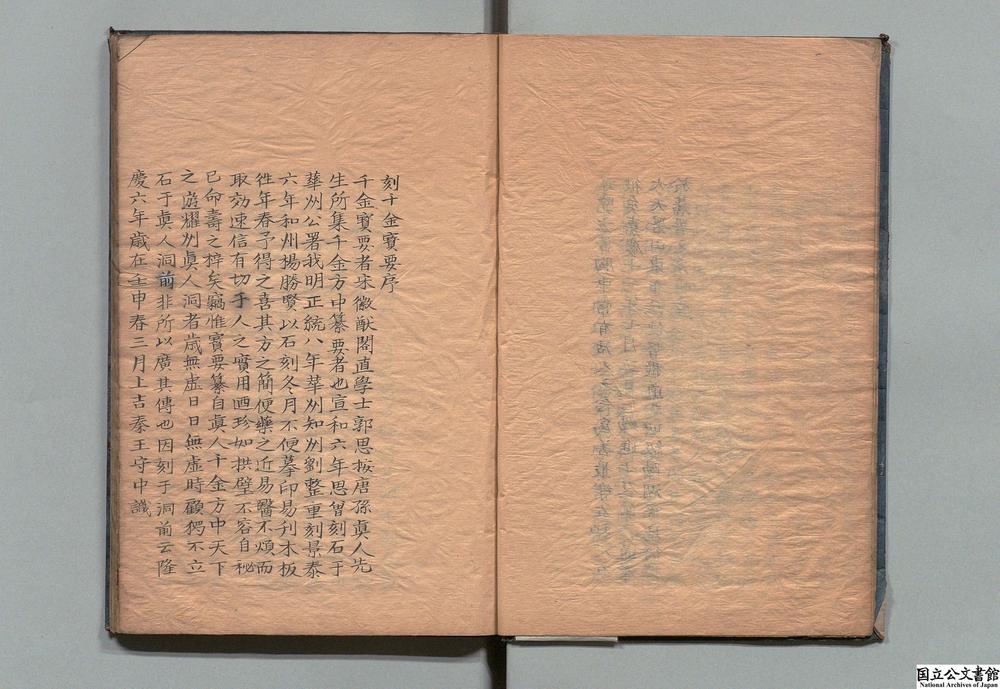 刻千金寶要序
千金寶要者宋徽猷閣直學士郭思按唐孫眞人先
生所集千金方中纂要者也宣和六年思曾刻石于
華州公署我明正統八年華州知州劉整重刻景泰
六年和州楊勝賢以石刻冬月不便摹印易刋木板
徃年春予得之喜其方之簡便藥之近易醫不煩而
取効速信有切于人之實用迺珍如拱璧不容自秘
已命壽之梓矣竊惟寶要纂自眞人千金方中天下
之遊耀州眞人洞者歳無虛日日無虛時顧獨不立
石于眞人洞前非所以廣其傳也因刻于洞前云隆
慶六年歳在壬申春三月上吉秦王守中識
国立公文書館
National Archives of Japan